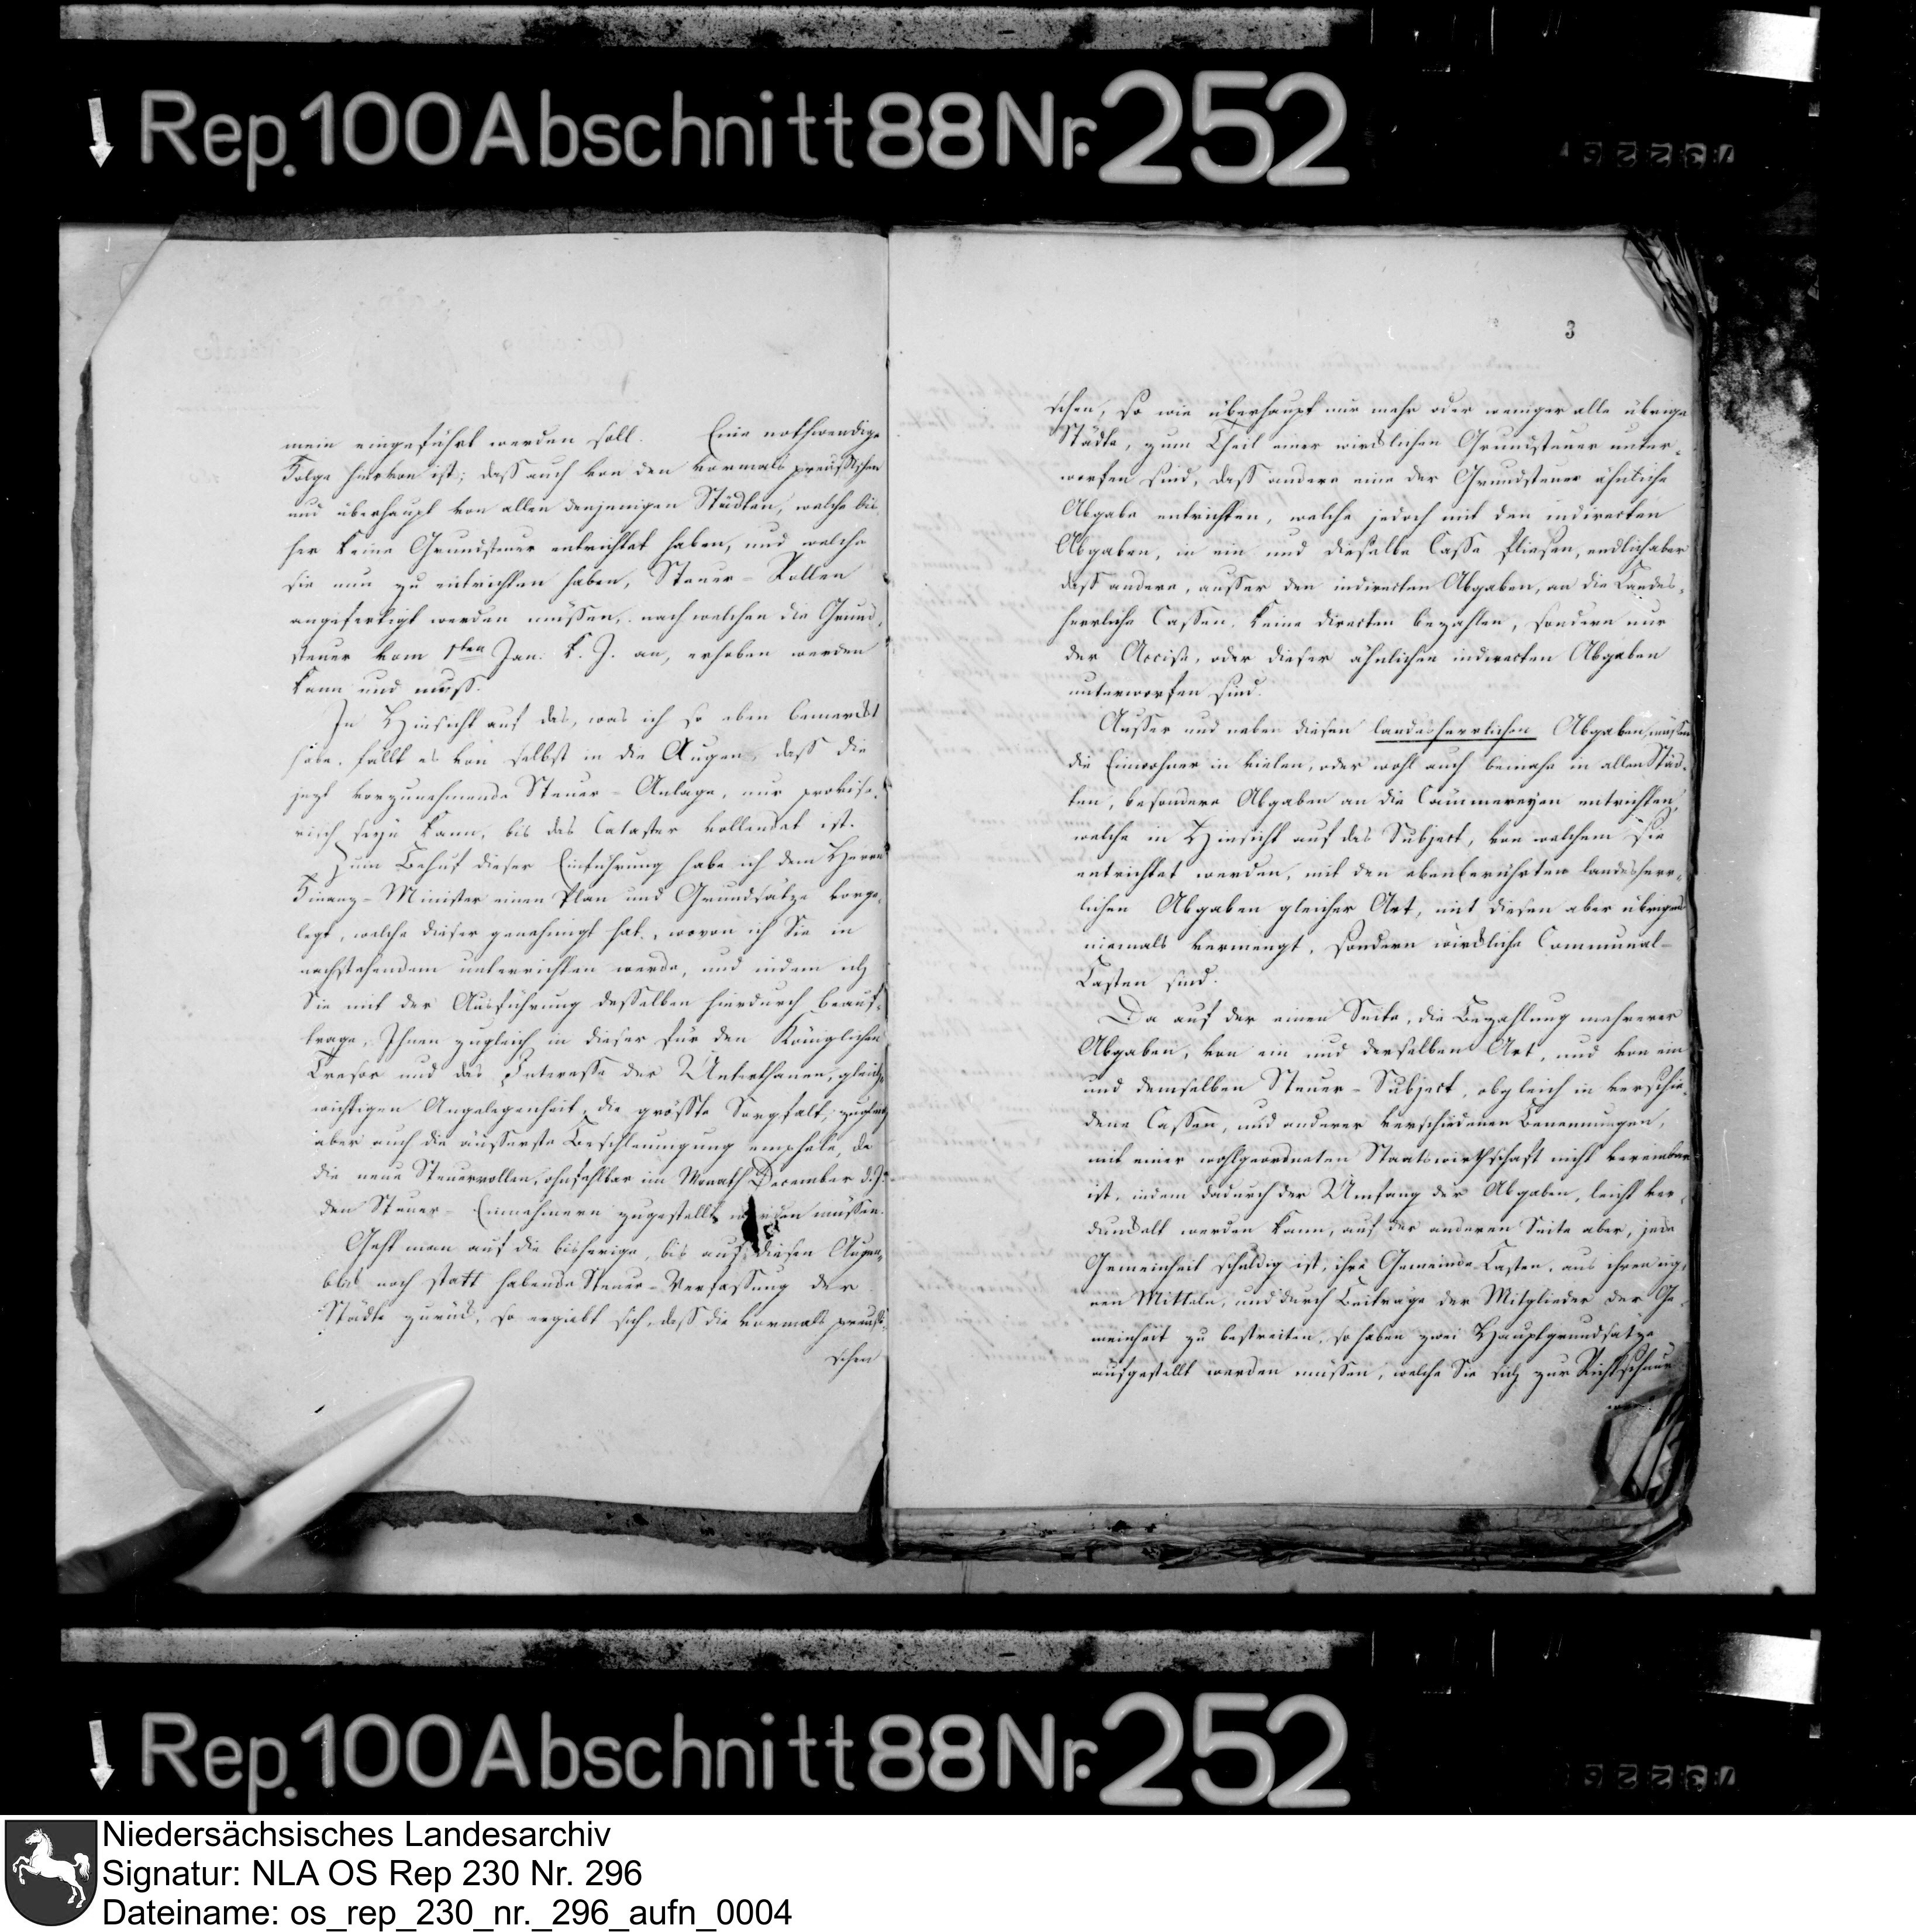 Rep. 100 Abschnitt 88 Nr. 252
mein eingeführt werden soll. Eine nothwendige
Folge hiervon ist; daß auch von den vormals preußischen
und überhaupt von allen denjenigen Städten, welche bis-
her keine Grundsteuer entrichtet haben, und welche
sie nun zu entrichten haben, Steuer-Rollen
angefertigt werden müssen, nach welchen die Grund-
steuer vom 1ten Jan. k. J. an, erhoben werden
kann und muß.
In Hinsicht auf das, was ich so eben bemerkt
habe, fällt es von selbst in die Augen, daß die
jezt vorzunehmende Steuer-Anlage, nur proviso-
risch seyn kann, bis das Cataster vollendet ist.
Zum Behuf dieser Einführung habe ich dem Herrn
Finanz-Minister einen Plan und Grundsätze vorge-
legt, welche dieser genehmigt hat, wovon ich Sie in
nachstehendem unterrichten werde, und indem ich
Sie mit der Ausführung desselben hierdurch beauf-
trage, Ihnen zugleich in dieser für den Königlichen
Tresor und das Interesse der Unterthanen, gleich
wichtigen Angelegenheit, die größte Sorgfalt, zugleich
aber auch die äusserste Beschleunigung empfele, da
die neue Steuerrollen, ohnfehlbar im Monath December d. J.
den Steuer-Einnehmern zugestellt werden müssen.
Geht man auf die bisherige, bis auf diesen Augen-
blick noch statt habende Steuer-Verfassung der
Städte zurück, so ergiebt sich, daß die vormals preußi-
schen
3
schen, so wie überhaupt nur mehr oder weniger alle übrige
Städte, zum Theil einer wirklichen Grundsteuer unter-
worfen sind, daß andere eine der Grundsteuer ähnliche
Abgabe entrichten, welche jedoch mit den indirecten
Abgaben, in ein und dieselbe Casse fliesen, endlich aber
daß andere, ausser den indirecten Abgaben, an die Landes-
herrliche Cassen, keine directen bezahlen, sondern nur
der Accise, oder dieser ähnlichen indirecten Abgaben
unterworfen sind.
Ausser und neben diesen landesherrlichen Abgaben, müssen
die Einwohner in vielen, oder wohl auch beinahe in allen Städ-
ten, besondere Abgaben an die Cämmereyen entrichten,
welche in Hinsicht auf das Subject, von welchem sie
entrichtet werden, mit den obenberührten landesherr-
lichen Abgaben gleicher Art, mit diesen aber übrigens
niemals vermengt, sondern wirkliche Communal-
Lasten sind.
Da auf der einen Seite, die Bezahlung mehrerer
Abgaben, von ein und derselben Art, und von ein
und demselben Steuer-Subject, obgleich in verschie-
dene Cassen, und anderer verschiedenen Benennungen,
mit einer wohlgeordneten Staatswirthschaft nicht vereinbar
ist, indem dadurch der Umfang der Abgaben, leicht ver-
dunkelt werden kann, auf der anderen Seite aber, jede
Gemeinheit schuldig ist, ihre Gemeinde-Lasten, aus ihren eig-
nen Mitteln, und durch Beiträge der Mitglieder der Ge-
meinheit zu bestreiten, so haben zwei Hauptgrundsätze
aufgestellt werden müssen, welche Sie sich zur Richtschnur
Rep. 100 Abschnitt 88 Nr. 252
Niedersächsisches Landesarchiv
Signatur: NLA OS Rep 230 Nr. 296
Dateiname: os_rep_230_nr._296_aufn_0004